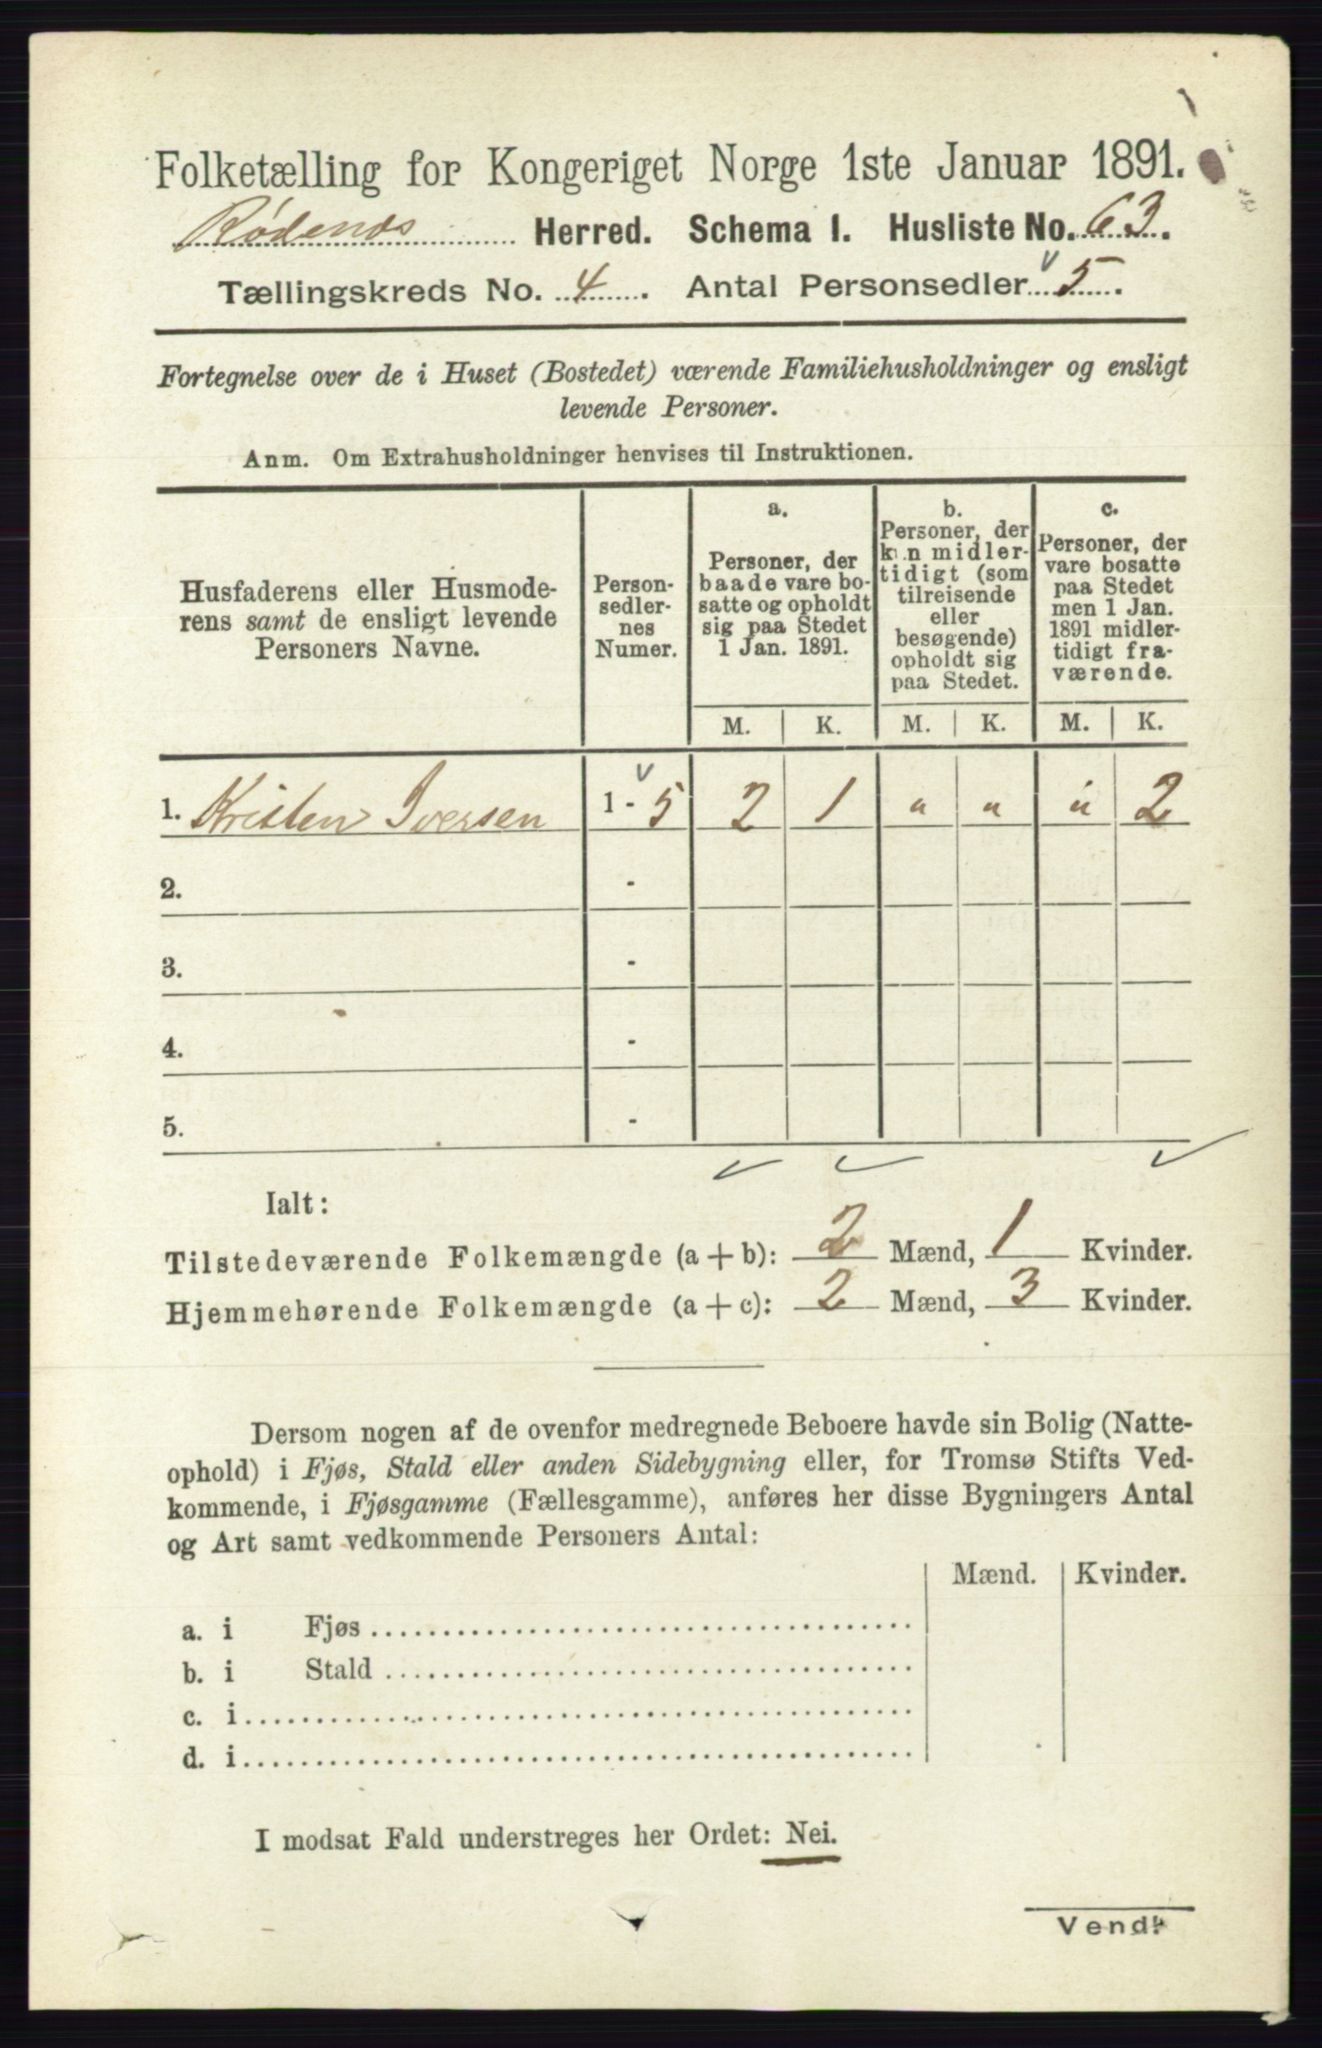 Folketælling for Kongeriget Norge 1ste Januar 1891.
Rødenes Herred. Schema I. Husliste No. 63.
Tællingskreds No. 4. Antal Personsedler 5.
Fortegnelse over de i Huset (Bostedet) værende Familiehusholdninger og ensligt
levende Personer.
Anm. Om Extrahusholdninger henvises til Instruktionen.
Husfaderens eller Husmode-
rens samt de ensligt levende
Personers Navne.
Person-
sedler-
nes
Numer.
a.
Personer, der
baade vare bo-
satte og opholdt
sig paa Stedet
1 Jan. 1891.
b.
Personer, der
kun midler-
tidigt (som
tilreisende
eller
besøgende)
opholdt sig
paa Stedet.
c.
Personer, der
vare bosatte
paa Stedet
men 1 Jan.
1891 midler-
tidigt fra-
værende.
M. K. M. K. M. K.
1. Kristen Iversen 1 - 5 2 1 " " " 2
2. -
3. -
4. -
5. -
Ialt:
Tilstedeværende Folkemængde (a + b): 2 Mænd, 1 Kvinder.
Hjemmehørende Folkemængde (a + c): 2 Mænd, 3 Kvinder.
Dersom nogen af de ovenfor medregnede Beboere havde sin Bolig (Natte-
ophold) i Fjøs, Stald eller anden Sidebygning eller, for Tromsø Stifts Ved-
kommende, i Fjøsgamme (Fællesgamme), anføres her disse Bygningers Antal
og Art samt vedkommende Personers Antal:
Mænd. Kvinder.
a. i Fjøs
b. i Stald
c. i
d. i
I modsat Fald understreges her Ordet: Nei.
Vend!